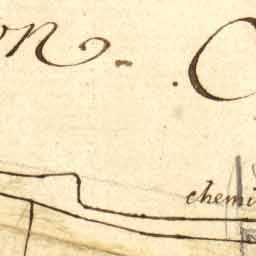 on - . C
chemi